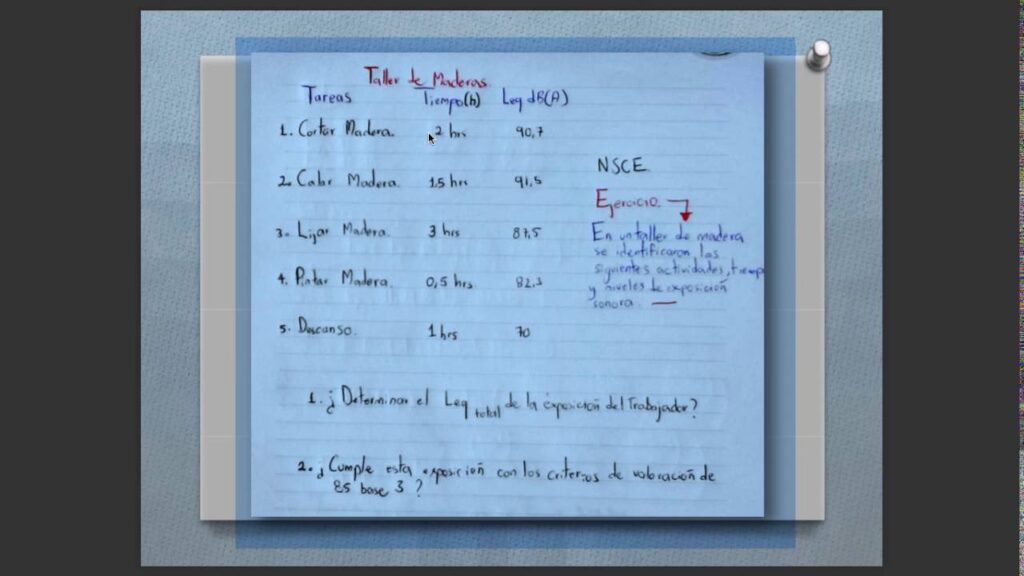 Taller de Maderas.
Tareas Tiempo(h) Leq dB(A)
1. Cortar Madera. 2 hrs 90,7
2. Calar Madera. 1.5 hrs 91,5
3. Lijar Madera. 3 hrs 87,5
4. Pintar Madera. 0,5 hrs 82,3
5. Descanso. 1 hrs 70
NSCE
Ejercicio.
En un taller de madera
se identificaron las
siguientes actividades, tiempo
y niveles de exposición
sonora.
1. ¿Determinar el Leq total de la exposición del Trabajador?
2. ¿Cumple esta exposición con los criterios de valoración de
85 base 3 ?